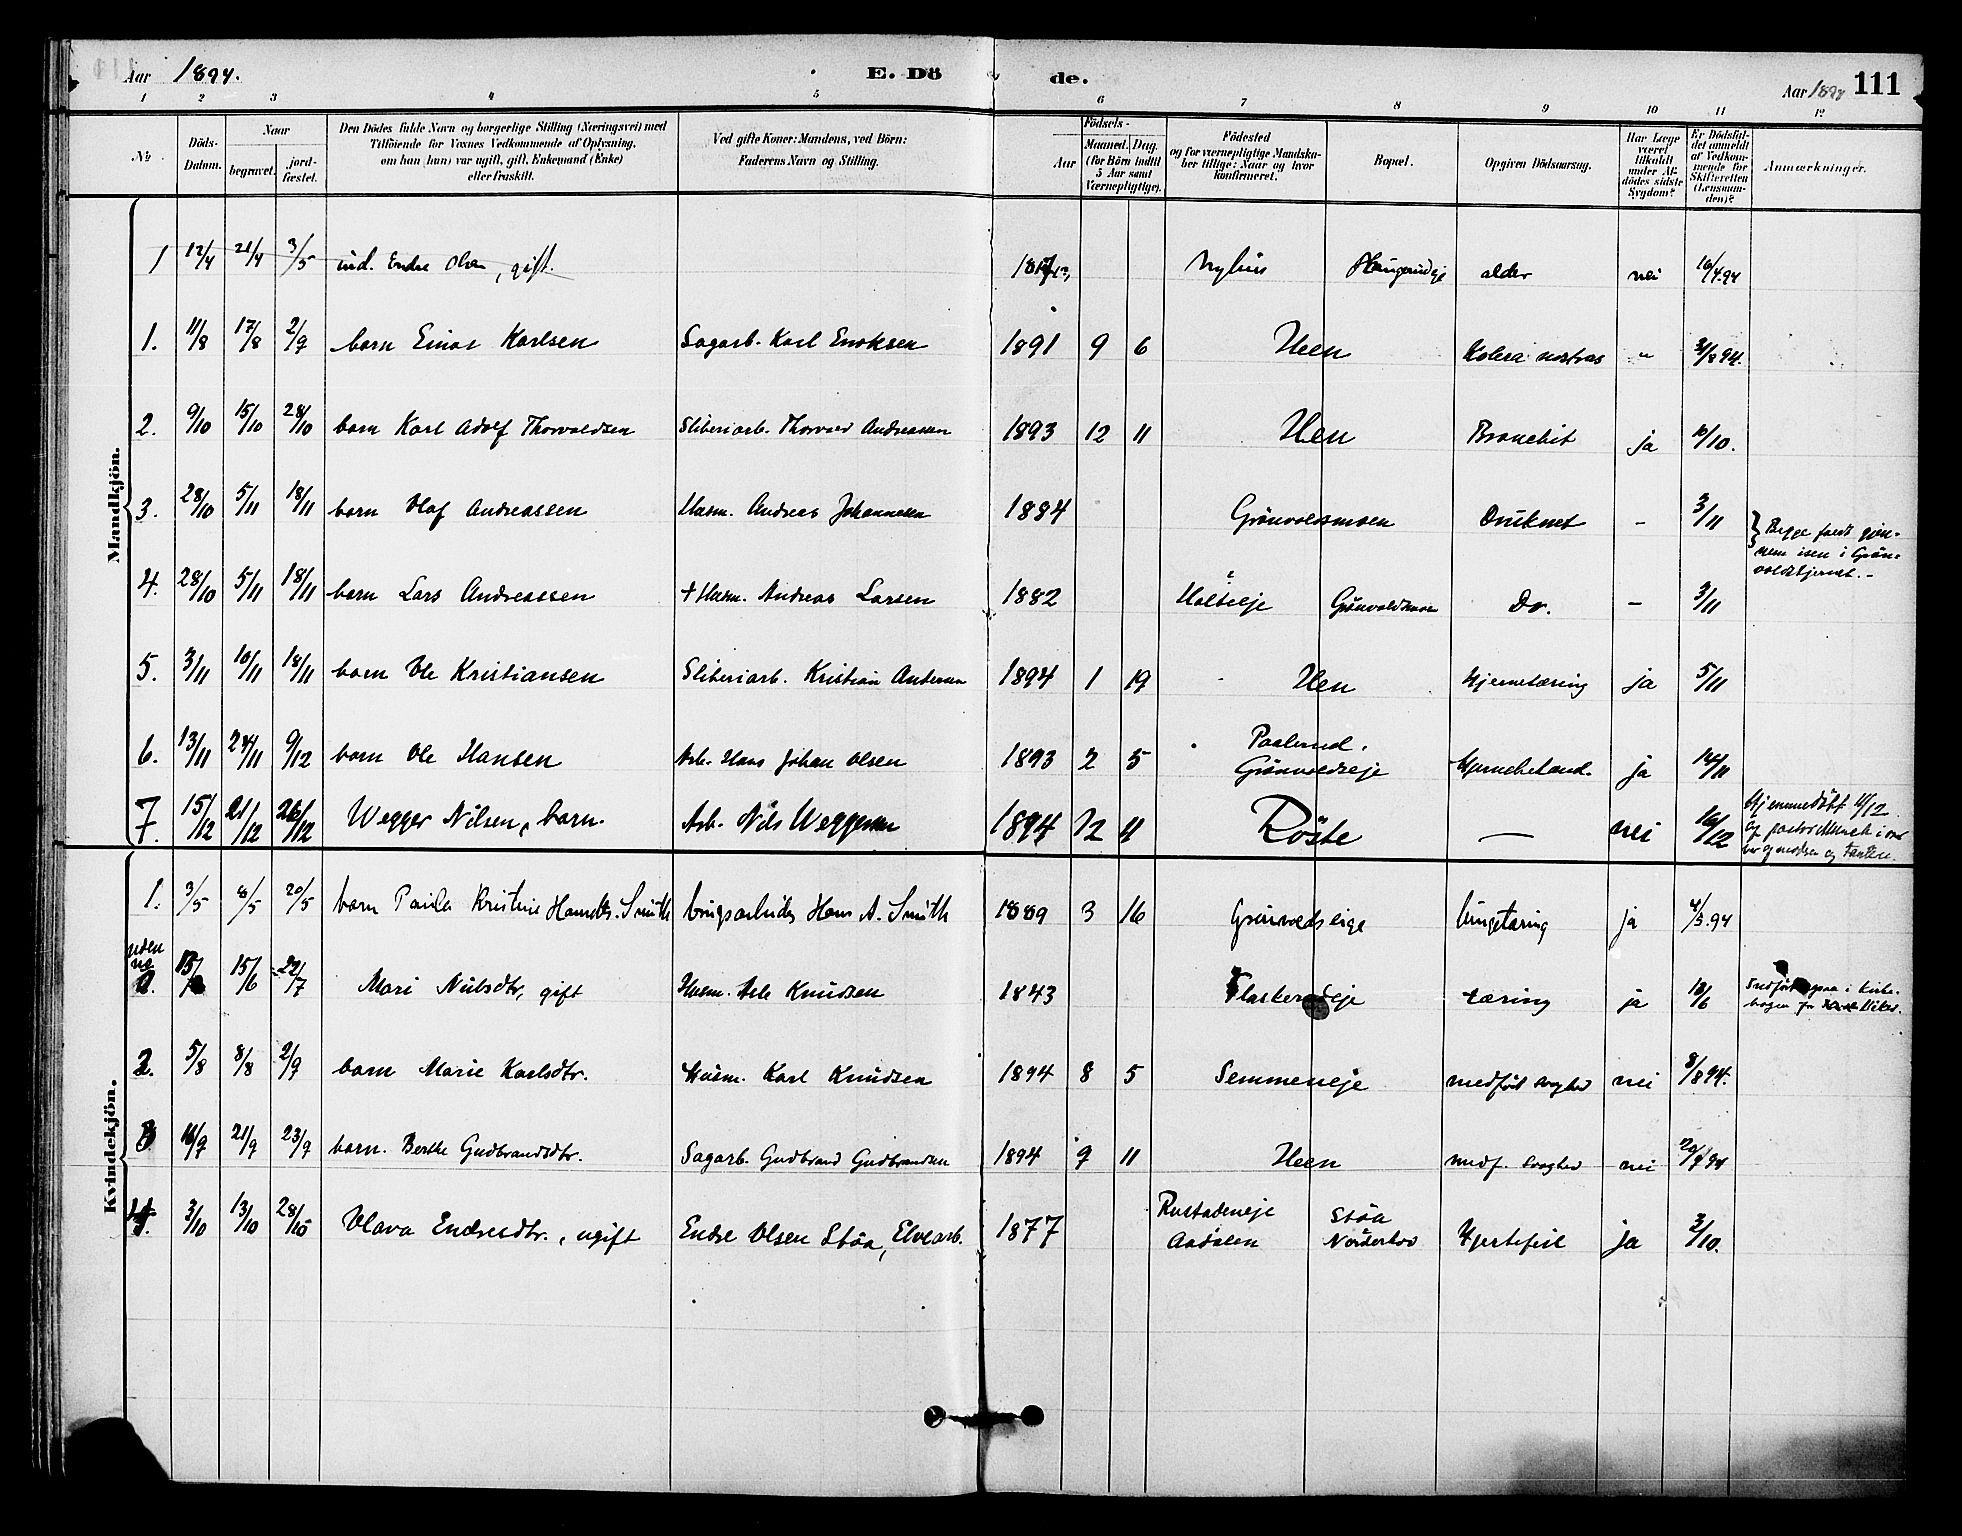 Aar 1894. E. Dö de. Aar 1894 111
1 2 3 4 5 6 7 8 9 10 11 12
No. Döds-Datum. Naar begravet. jordfæstet. Den Dödes fulde Navn og borgerlige Stilling (Næringsvei) med Tilföiende for Voxnes Vedkommende af Oplysning, om han (hun) var ugift, gift, Enkemand (Enke) eller fraskilt. Ved gifte Koner: Mandens, ved Börn: Faderens Navn og Stilling. Födsels- Aar Maaned. Dag. (for Börn indtil 5 Aar samt Værnepligtige). Födested og for værnepligtige Mandskaber tillige: Naar og hvor konfirmeret. Bopæl. Opgiven Dödsaarsag. Har Læge været tilkaldt under Afdödes sidste Sygdom? Er Dödsfaldet anmeldt af Vedkommende for Skifteretten (Lensmanden)? Anmærkninger.
Mandkjön.
1 12/4 21/4 3/5 ind. Endre Olsen, gift. Nyhus alder nei 16/4.94
1. 11/8 17/8 2/9 barn Einar Karlsen Sagarb. Karl Enoksen 1891 9 6 Heen Kolera nostras " /8 94.
2. 9/10 15/10 28/10 barn Karl Adolf Thorvaldsen Sliberiarb. Thorvald Andreassen 1893 12 11 Hen Bronchit ja 10/10.
3. 28/10 5/11 18/11 barn Olaf Andreassen Husm. Andreas Johannesen 1884 Grönvoldsmoen Druknet - 3/11 } Begge faldt gjen-
nem isen i Grön-
voldtjernet. -
4. 28/10 5/11 18/11 barn Lars Andreassen + Husm. Andreas Larsen 1882 Holteeje Grönvoldsmoen Do. - 3/11
5. 3/11 10/11 18/11 barn Ole Kristiansen Sliberiarb. Kristian Andersen 1894 1 19 Hen Hjernetæring ja 5/11
6. 13/11 24/11 9/12 barn Ole Hansen Arb. Hans Johan Olsen 1893 2 5 Paalerud. Grönvoldseje Hjernebetænd. ja 14/11
7. 15/12 21/12 26/12 Wegger Nilsen, barn. Arb. Nils Weggersen 1894 12 11 Röste — nei 16/12 Hjemmedöbt 11/12
Kvindekjön.
1. 3/5 8/5 20/5 barn Paula Kristine Hansdtr. Smith Brugsarbeider Hans A. Smith 1889 3 16 Grönvoldseige lungetæring ja 4/5.94
uden
no 15/6 22/7 Mari Nilsdtr, gift Husm. Asle Knudsen 1843 Flaskerudeje tæring ja 18/6 Indfört ogsaa i Kirke-
bogen for Viker.
2. 5/8 8/8 2/9 barn Marie Karlsdtr. Husm. Karl Knudsen 1894 8 5 Semmeneje medfödt svaghed nei 8/8 94.
3 18/9 21/9 23/9 barn. Berthe Gudbrandsdtr. Sagarb. Gudbrand Gudbrandsen 1894 9 11 Heen medf. svaghed nei 20/9 94
4. 3/10 13/10 28/10 Olava Endresdtr., ugift Endre Olsen Stöa, Elvearb. 1877 Rustadeneje Aadalen Stöa Norderhov Hjertefeil ja 3/10.